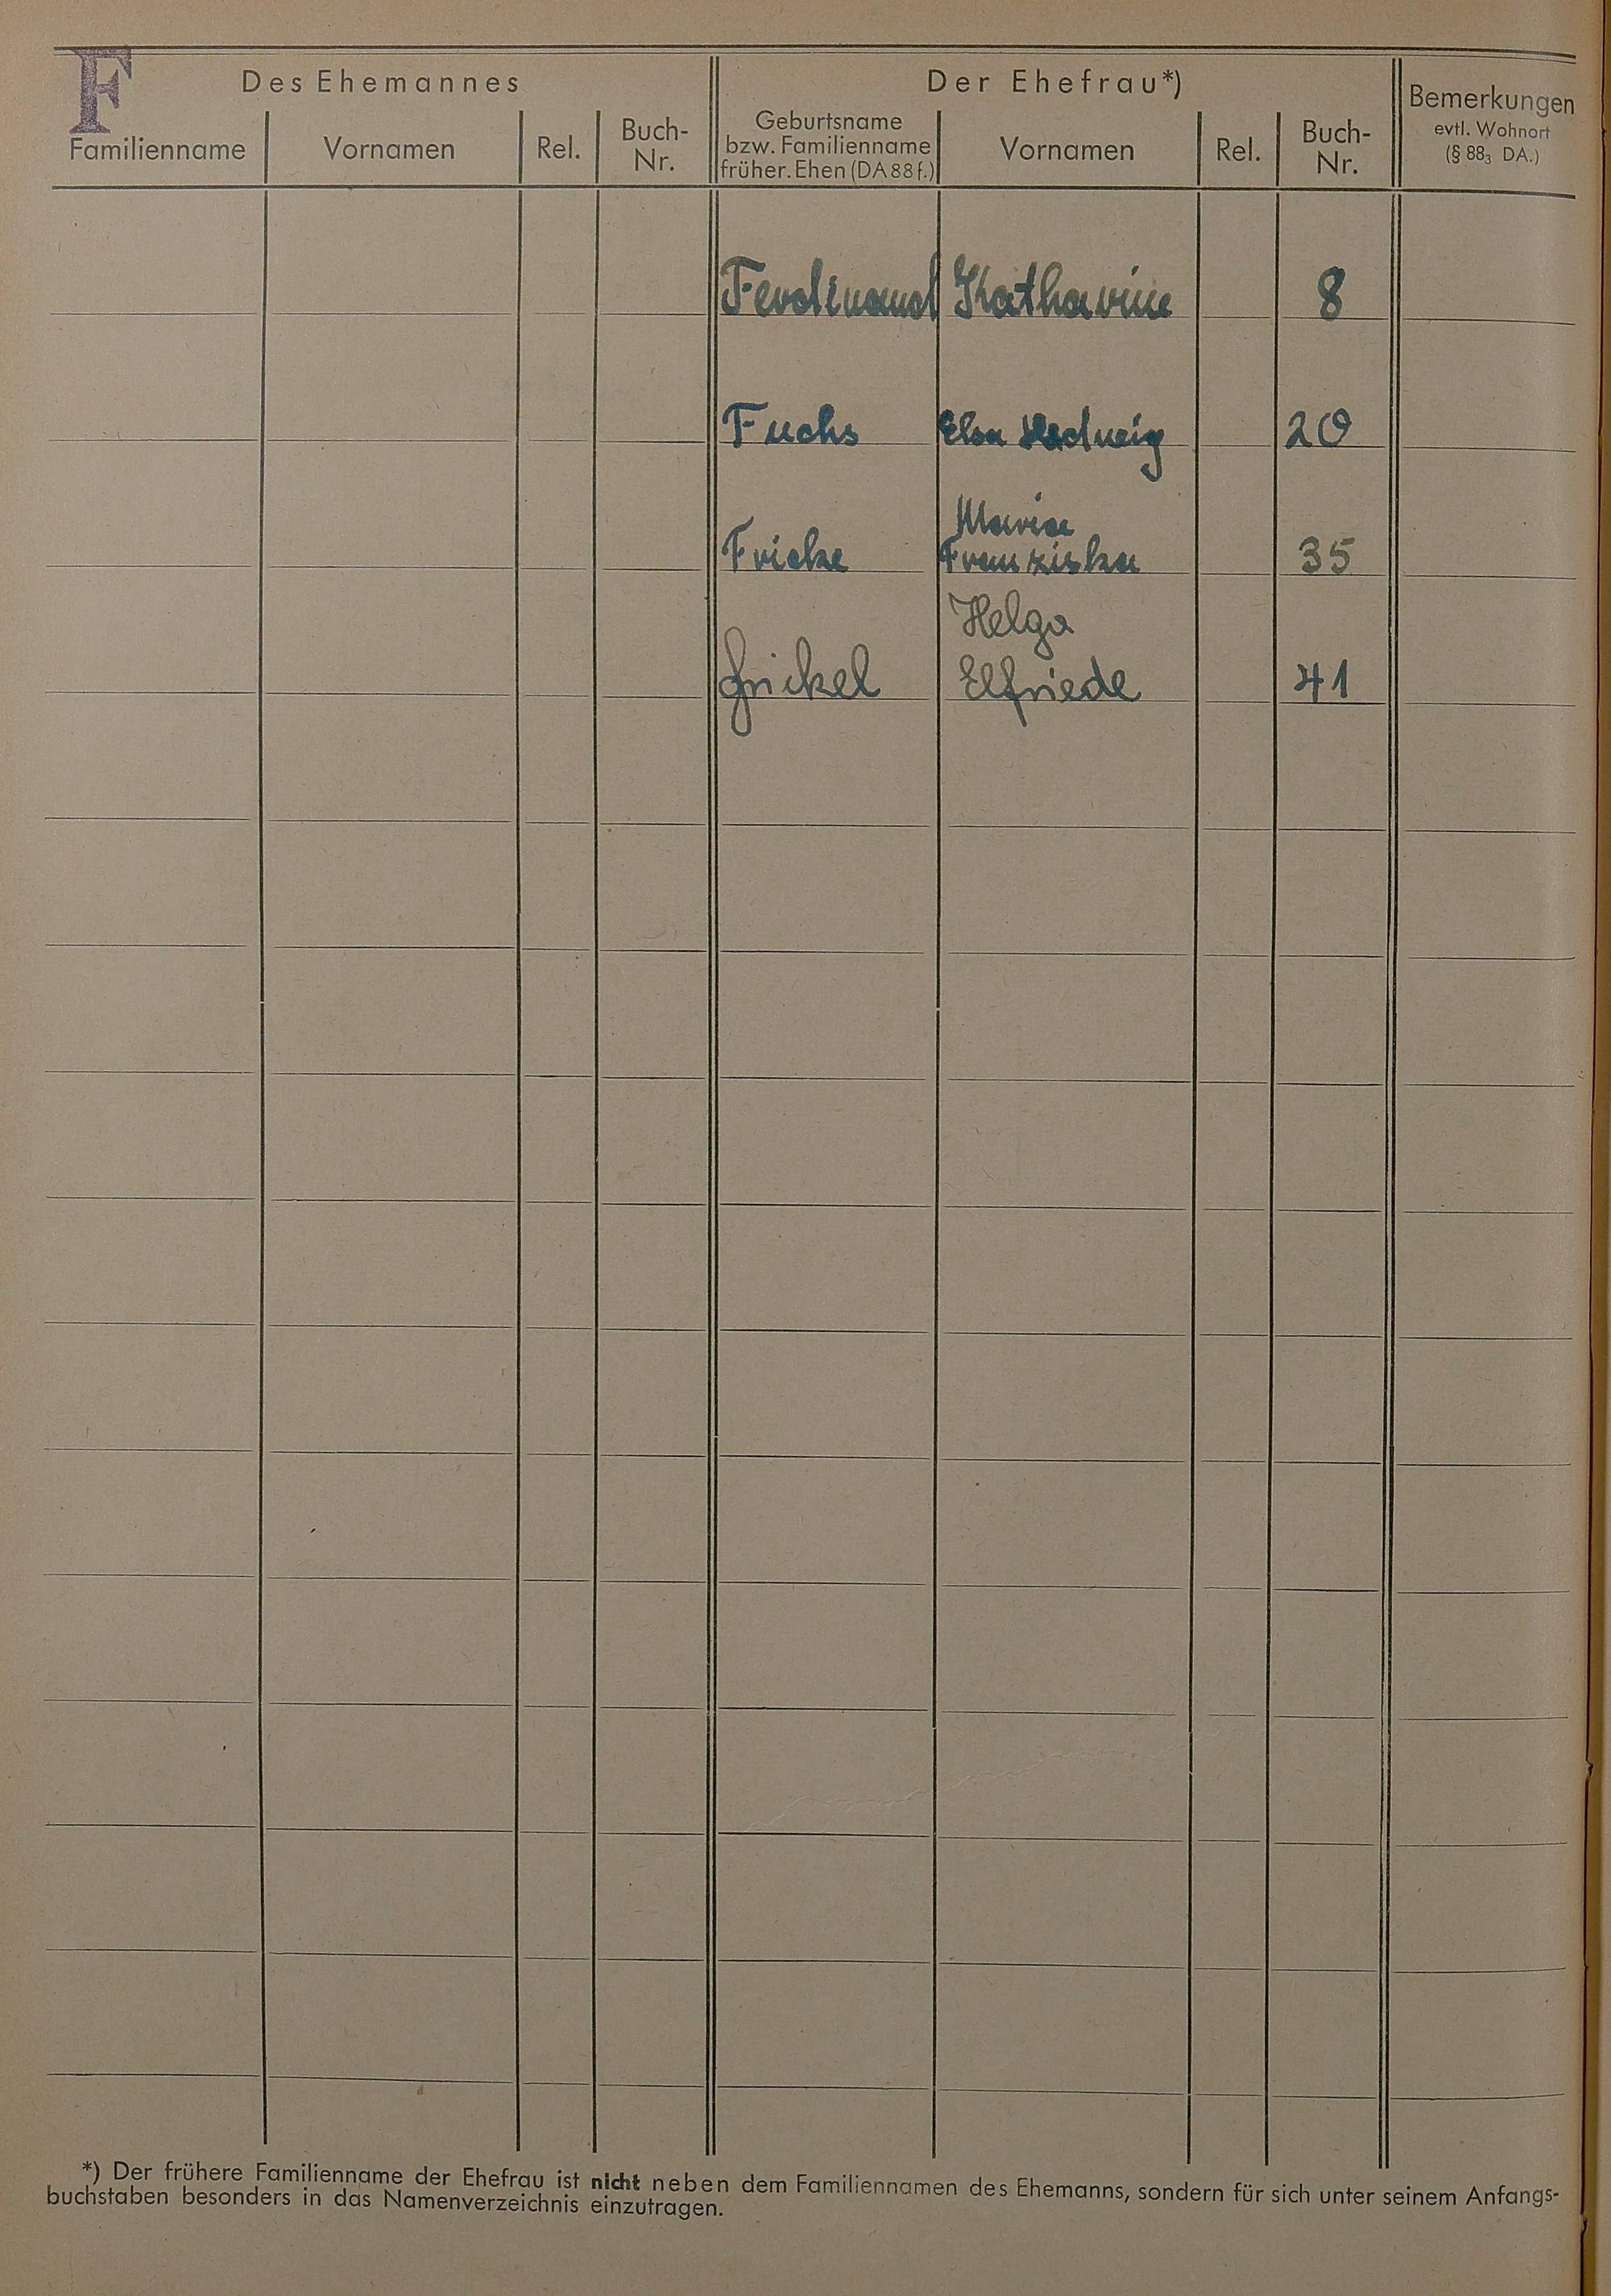 F
Des Ehemannes
Der Ehefrau*)
Familienname
Vornamen
Rel.
Buch-
Nr.
Geburtsname
bzw. Familienname
früher. Ehen (DA 88 f.)
Vornamen
Rel.
Buch-
Nr.
Bemerkungen
evtl. Wohnort
(§ 88₃ DA.)
Ferdinand Katharine 8
Fuchs Elsa Hedwig 20
Maria
Fricke Franziska 35
Helga
Frickel Elfriede 41
*) Der frühere Familienname der Ehefrau ist nicht neben dem Familiennamen des Ehemanns, sondern für sich unter seinem Anfangs-
buchstaben besonders in das Namenverzeichnis einzutragen.